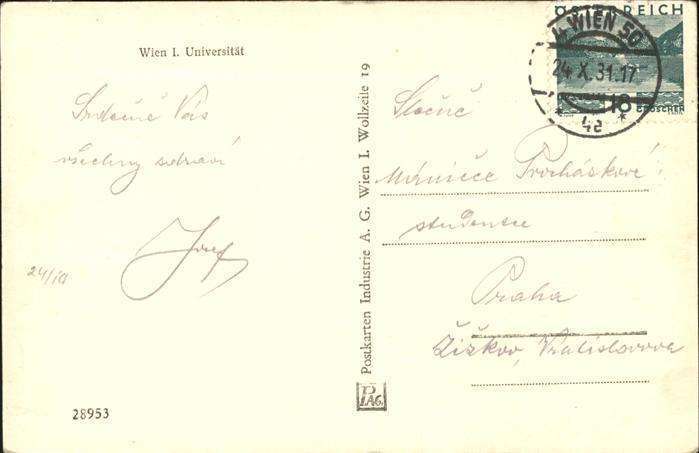 Wien I. Universität
Srdečně Vás
všechny zdraví
Josf
24/10
28953
Postkarten Industrie A. G. Wien I. Wollzeile 19
PIAG.
ÖSTERREICH
18
GROSCHEN
4 WIEN 50
24.X.31.17
* 4a *
Slečně
Procháskové
studentce
Praha
Žižkov, Vratislavova